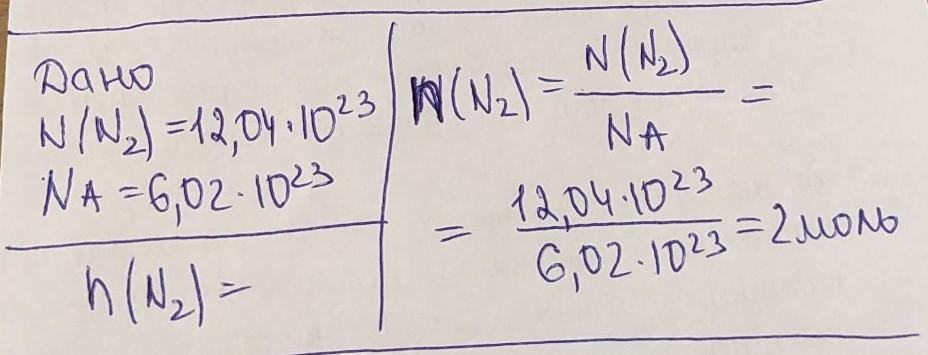 Дано
N(N₂) = 12,04·10²³
NA = 6,02·10²³
n(N₂) =
n(N₂) = N(N₂) / NA =
= 12,04·10²³ / 6,02·10²³ = 2 моль